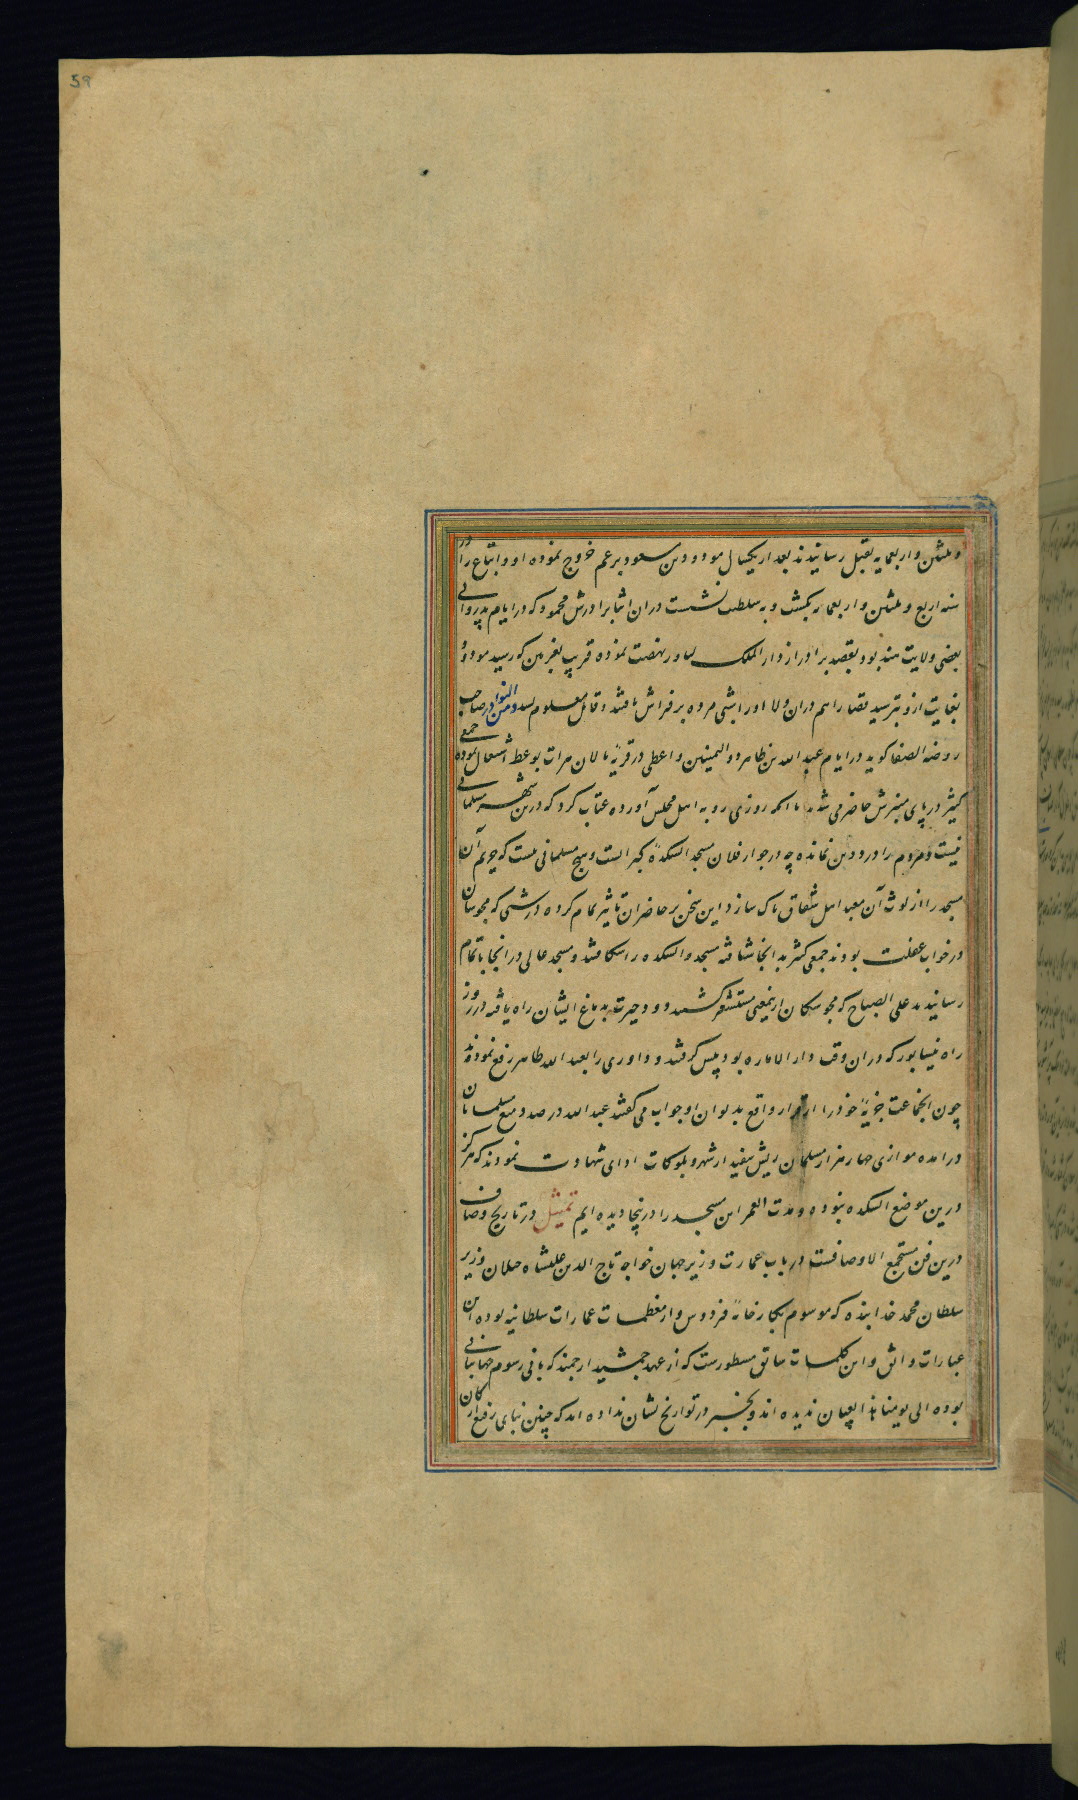 59
و ثلثین و اربعمایه بقتل رسانیدند بعد از یکسال مودود بن مسعود بر عم خروج نموده او و اتباع را در
سنه اربع و ثلثین و اربعمایه بکشت و به سلطنت نشست در آن اثنا برادرش محمود که در ایام پدر والی
بعضی ولایت هند بود بقصد برادر از دار الملک لهاور نهضت نموده قریب بغزنین که رسید مودود
بغایت از و بترسید قضا را هم در آن ولا او را شبی مرده بر فراش یافتند و قاتل معلوم نشد و من النوادر صاحب
روضه الصفا کوید در ایام عبد الله بن طاهر ذو الیمینین واعظی در قریهٔ مالان هرات بوعظ اشتغال نموده جمعی
کثیر در پای منبرش حاضر می شدند تا انکه روزی رو به اهل مجلس آورده عتاب کرد که درین شهر مسلمانی
نیست و مردم را درد دین نمانده چه در جوار فلان مسجد اتشکدهٔ کبرانست و هیچ مسلمانی نیست که حریم آن
مسجد را از لوث آن معبد اهل شقاق پاک سازد این سخن بر حاضران تاثیر تمام کرده در شبی که مجوسان
در خواب غفلت بودند جمعی کثیر بدانجا شتافته مسجد و اتشکده را شکافتند و مسجد عالی در انجا باتمام
رسانیدند علی الصباح که مجوسکان ازینمعنی مستشعر کشتند دود حیرت بدماغ ایشان راه یافته در روز
راه نیشابور که در ان وقت دار الاماره بود پیش کرفتند و داوری را بعبد الله طاهر رفع نمودند
چون انجماعت جزیهٔ خود را از قرار واقع بدیوان او جواب می کفتند عبد الله در صدد منع مسلمانان
درآمده موازی چهار هزار مسلمان ریش سفید از شهر و بلوکات ادای شهادت نمودند که هرکز
درین موضع اتشکده نبوده و مدت العمر این مسجد را درینجا دیده ایم تمثیل در تاریخ وصاف
درین فن مستجمع الاوصافست در باب عمارت وزیر جهان خواجه تاج الدین علیشاه جیلان وزیر
سلطان محمد خدابنده که موسوم بکارخانهٔ فردوس و از معظمات عمارات سلطانیه بوده این
عبارات واثق و این کلمات سائق مسطورست که از عهد جمشید ارجمند که بانی رسوم جهانبانی
بوده الی یومنا هذا بعیان ندیده اند و بخبر در تواریخ نشان نداده اند که چنین بنای رفیع ارکان